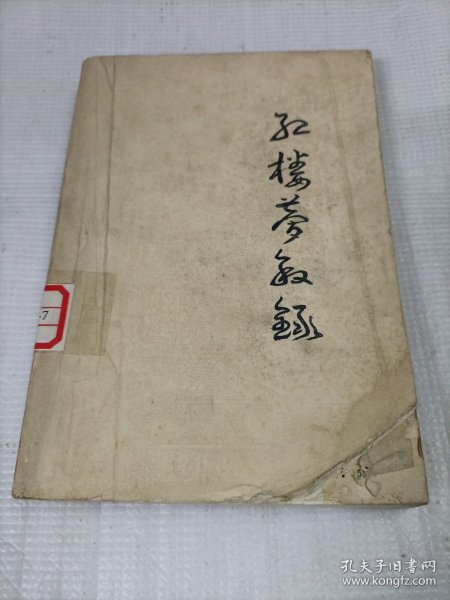 红楼梦叙录
7
孔夫子旧书网
www.kongfz.com